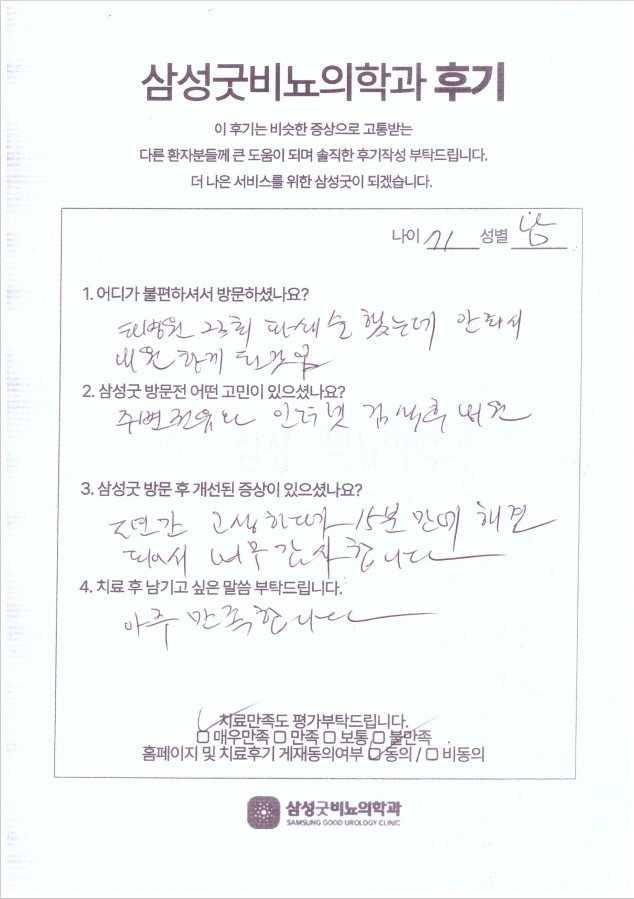 삼성굿비뇨의학과 후기
이 후기는 비슷한 증상으로 고통받는
다른 환자분들께 큰 도움이 되며 솔직한 후기작성 부탁드립니다.
더 나은 서비스를 위한 삼성굿이 되겠습니다.
나이 71 성별 남
1. 어디가 불편하셔서 방문하셨나요?
대병원 2,3회 파쇄술 했는데 안되서
내원하게 되었음
2. 삼성굿 방문전 어떤 고민이 있으셨나요?
주변 인터넷 검색후 내원
3. 삼성굿 방문 후 개선된 증상이 있으셨나요?
고생하다가 15분 만에 해결
되어서 너무 감사합니다
4. 치료 후 남기고 싶은 말씀 부탁드립니다.
아주 만족합니다
치료만족도 평가부탁드립니다.
☐ 매우만족 ☐ 만족 ☐ 보통 ☐ 불만족
홈페이지 및 치료후기 게재동의여부 ☐ 동의 / ☐ 비동의
삼성굿비뇨의학과
SAMSUNG GOOD UROLOGY CLINIC